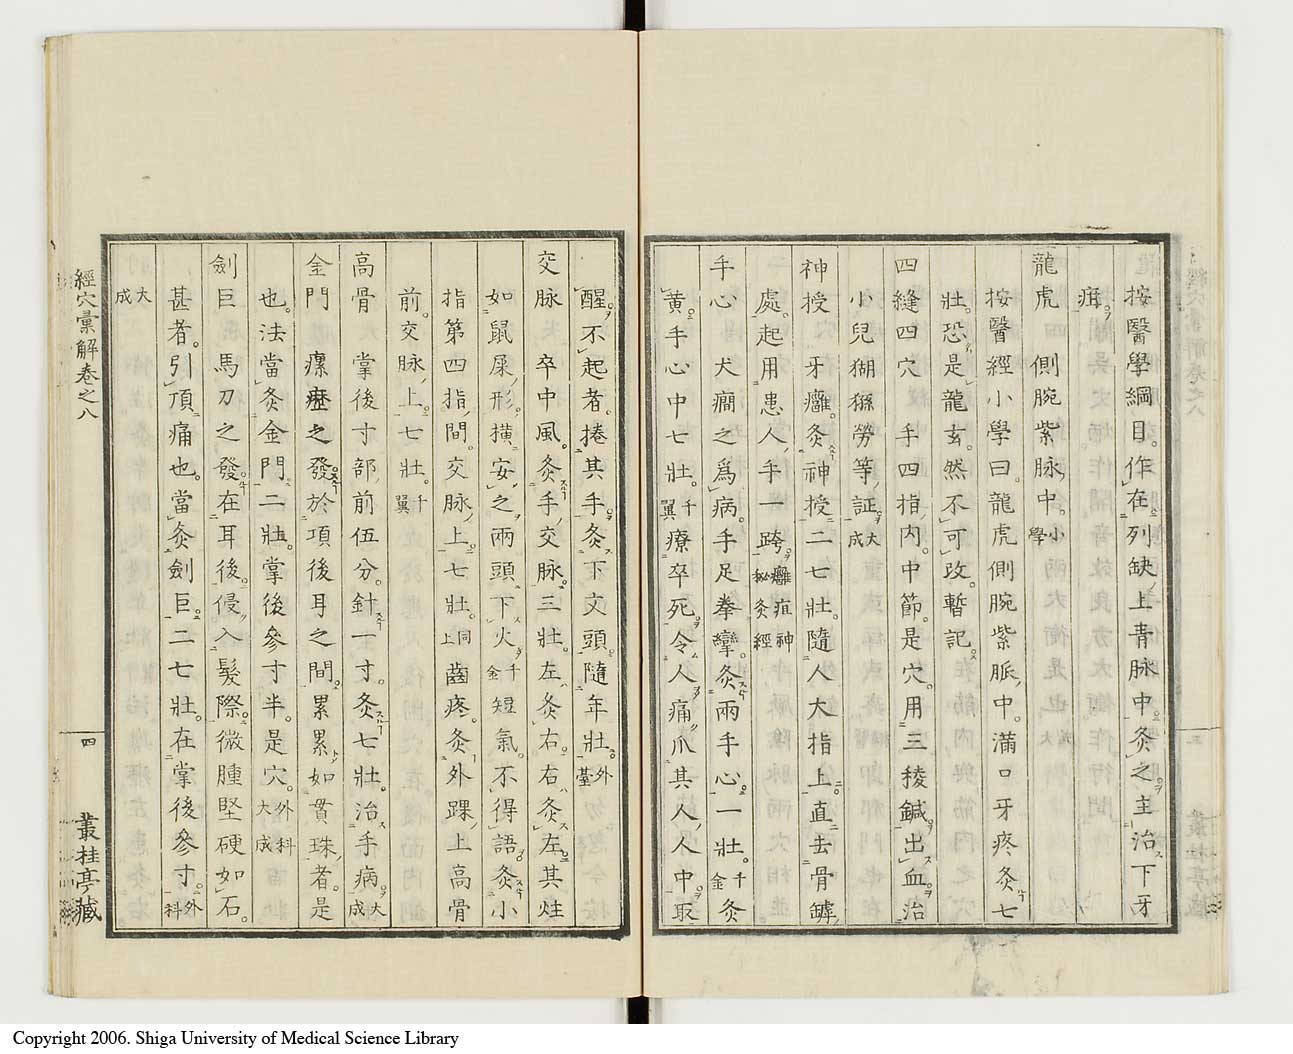 按醫學綱目。作在列缺上青脉中。灸之主治下牙
疳。
龍虎　側腕紫脉中。小學
按醫經小學曰。龍虎側腕紫脈中。滿口牙疼灸七
壯。恐是龍玄。然不可攷。暫記。
四縫四穴　手四指内。中節。是穴。用三稜鍼出血。治
小兒猢猻勞等証。大成
神授　牙癰。灸神授二七壯。隨人大指上。直去骨罅
處。起用患人手一跨。癰疽神秘灸經
手心　犬癎之爲病。手足拳攣。灸兩手心。一壯。千金灸
黃。手心中七壯。千翼療卒死。令人痛爪其人人中。取
醒。不起者。捲其手。灸下文頭。隨年壯。外䑓
交脉　卒中風。灸手交脉。三壯。左灸右。右灸左。其炷
如鼠屎形。橫安之兩頭下火。千金短氣。不得語。灸小
指第四指間。交脉上。七壯。同上齒疼。灸外踝上高骨
前。交脉上。七壯。千翼
高骨　掌後寸部。前伍分。針一寸。灸七壯。治手病。大成
金門　瘰癧之發。於項後耳之間。累累如貫珠者。是
也。法當灸金門。二壯。掌後參寸半。是穴。外科大成
劍巨　馬刀之發。在耳後。侵入髮際。微腫堅硬如石。
甚者。引頂痛也。當灸劍巨。二七壯。在掌後參寸。外科
大成
經穴彙解卷之八
四
叢桂亭藏
Copyright 2006. Shiga University of Medical Science Library